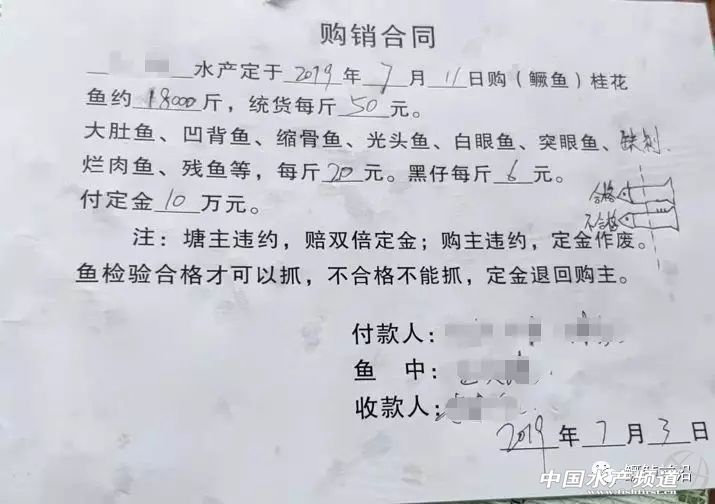 购销合同
水产定于2019年7月11日购（鳜鱼）桂花
鱼约18000斤，统货每斤50元。
大肚鱼、凹背鱼、缩骨鱼、光头鱼、白眼鱼、突眼鱼、
烂肉鱼、残鱼等，每斤20元。黑仔每斤6元。
合格
付定金10万元。
不合格
注：塘主违约，赔双倍定金；购主违约，定金作废。
鱼检验合格才可以抓，不合格不能抓，定金退回购主。
付款人：
鱼 中：
收款人：
2019年7月3日
中国水产频道
www.fishfirst.cn